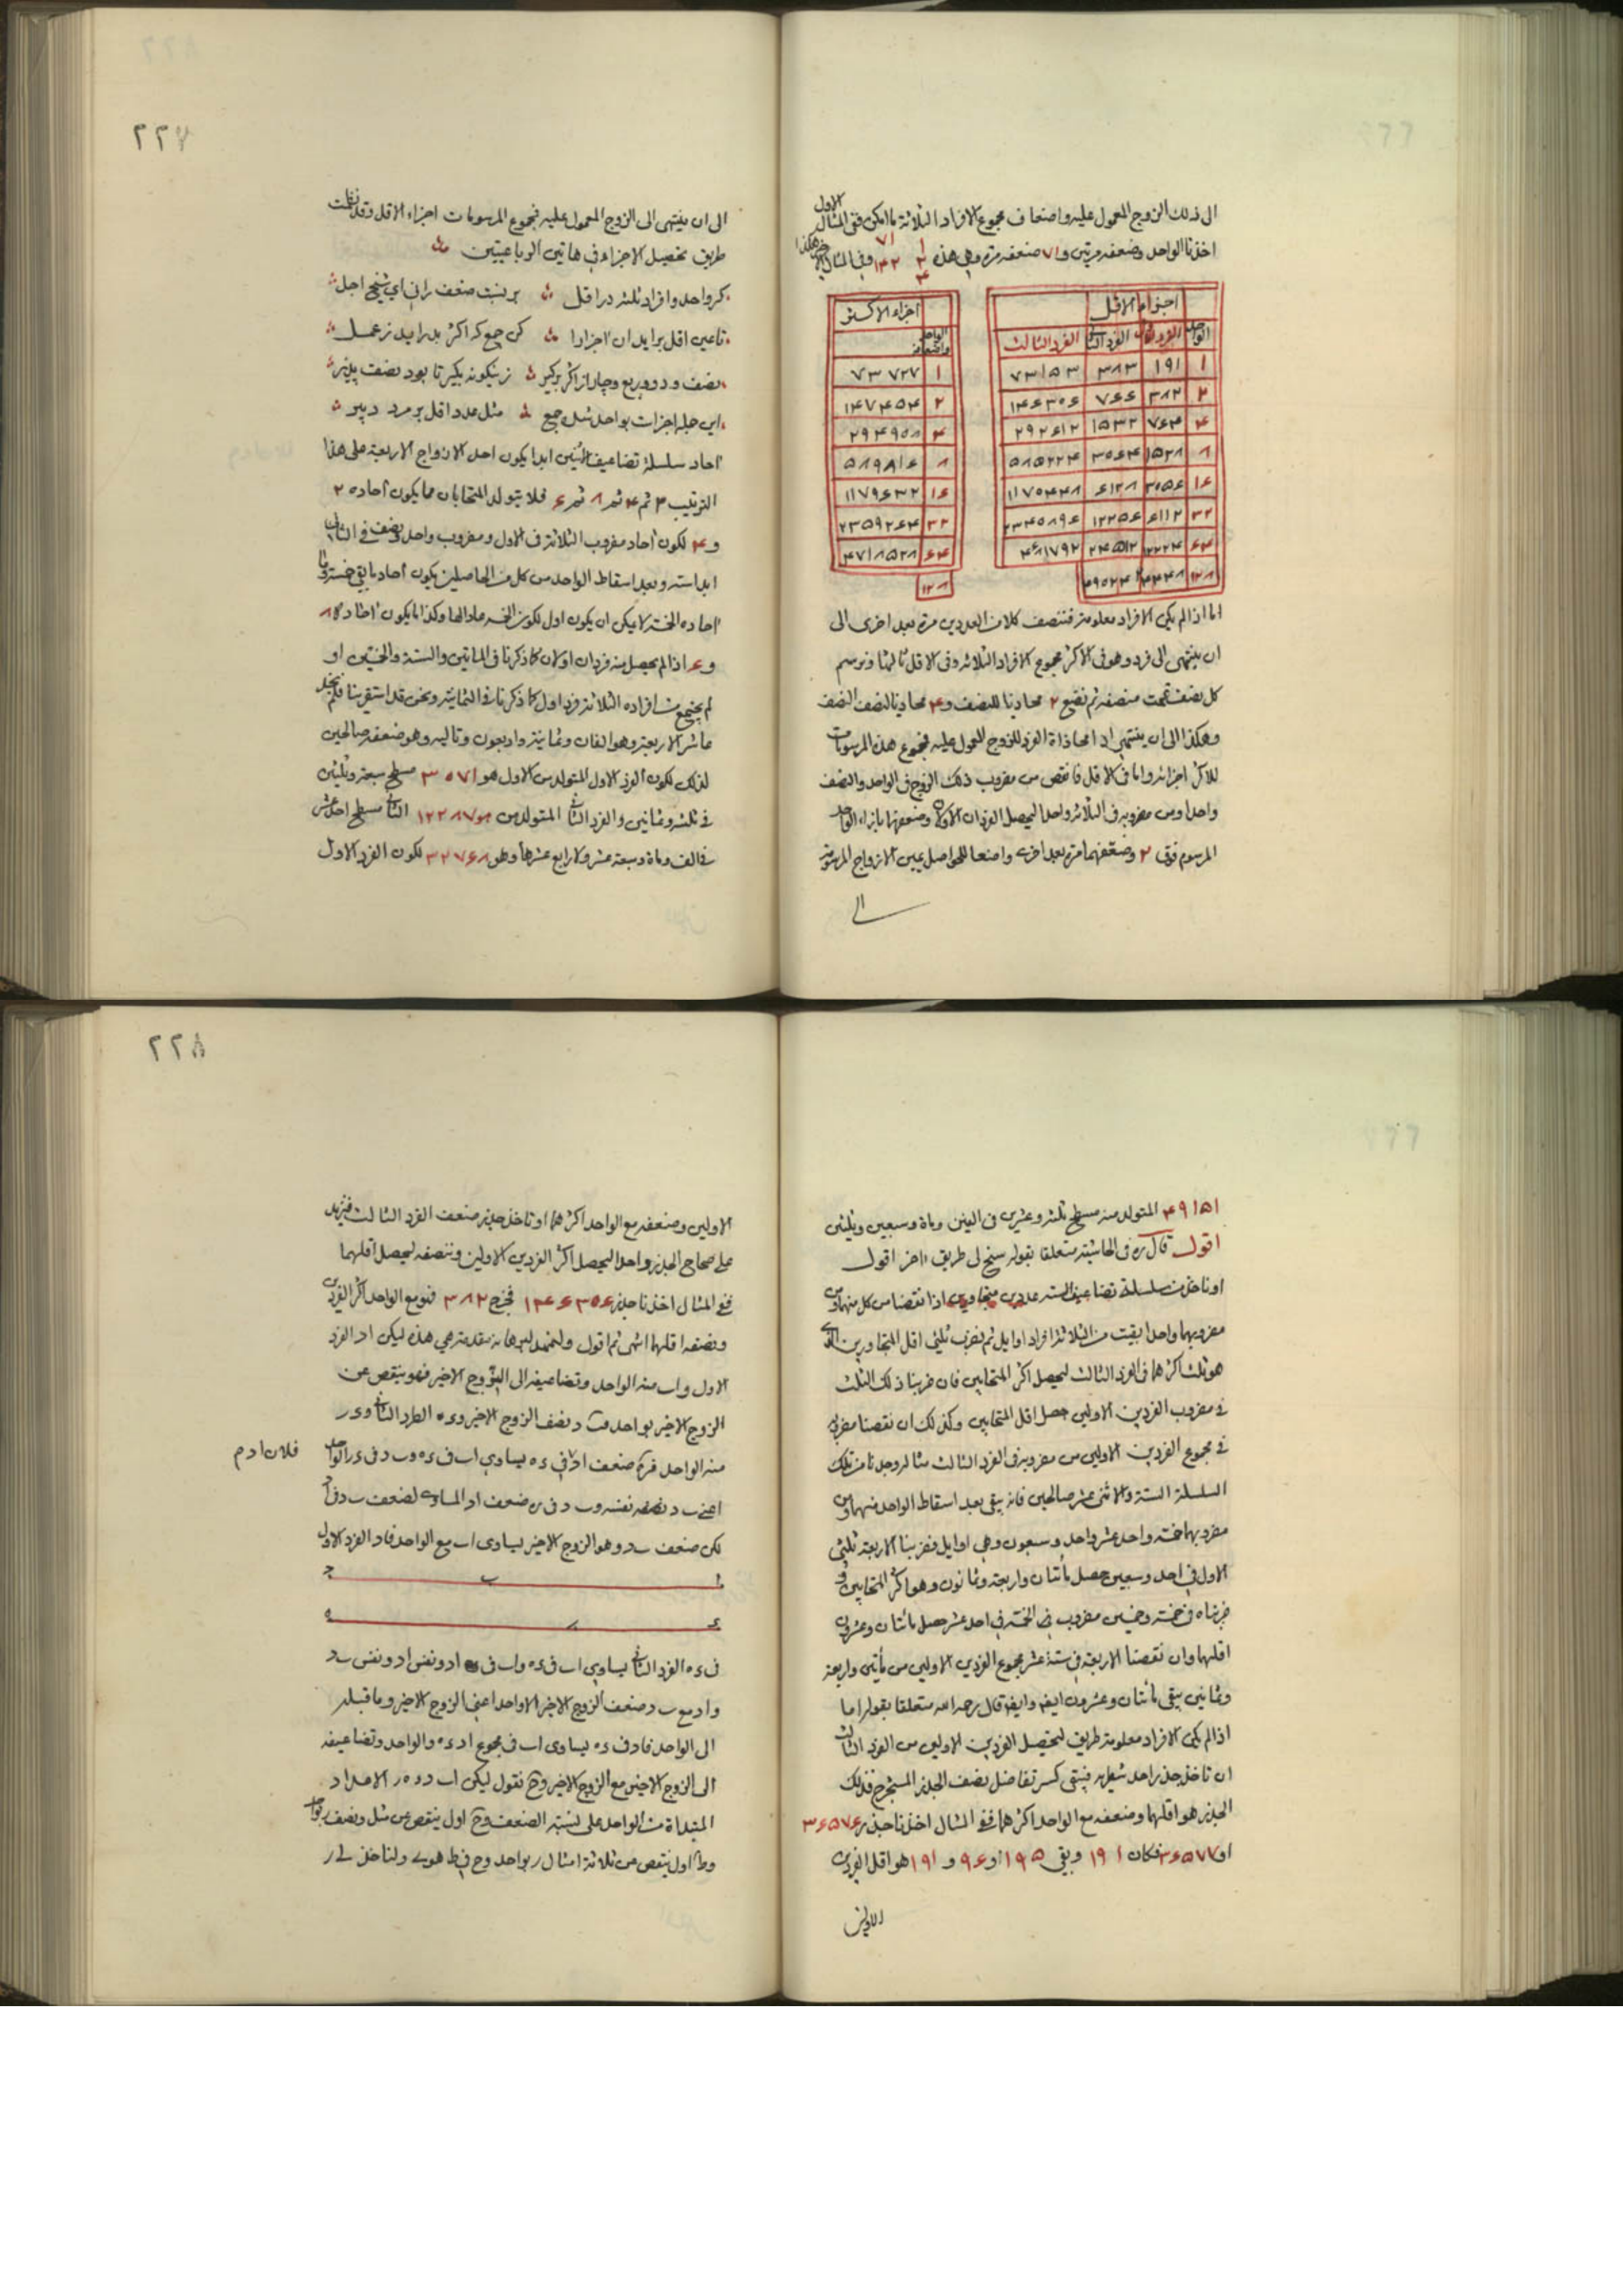 الى ذلك الزوج المعمول عليه واضعاف مجموع الافراد الثلاثة بالعكس ففى المثال الاول
اخذنا الواحد وضعفه مرتين و ٧١ ضعفه مرة وهى هذه ١ ٢ ٤ ٧١ ١٤٢ وفى المثال هكذا
اجزاء الاقل
الواحد الفرد الاول الفرد الثانى الفرد الثالث
١ ١٩١ ٣٨٣ ٧٣١٥٣
٢ ٣٨٢ ٧٦٦ ١٤٦٣٠٦
٤ ٧٦٤ ١٥٣٢ ٢٩٢٦١٢
٨ ١٥٢٨ ٣٠٦٤ ٥٨٥٢٢٤
١٦ ٣٠٥٦ ٦١٢٨ ١١٧٠٤٤٨
٣٢ ٦١١٢ ١٢٢٥٦ ٢٣٤٠٨٩٦
٦٤ ١٢٢٢٤ ٢٤٥١٢ ٤٦٨١٧٩٢
١٢٨ ٢٤٤٤٨ ٤٩٠٢٤
اجزاء الاكثر
الواحد واضعافه
١ ٧٣٧٢٧
٢ ١٤٧٤٥٤
٤ ٢٩٤٩٠٨
٨ ٥٨٩٨١٦
١٦ ١١٧٩٦٣٢
٣٢ ٢٣٥٩٢٦٤
٦٤ ٤٧١٨٥٢٨
١٢٨
اما اذا لم يكن الافراد معلومة فننصف كلا من العددين مرة بعد اخرى الى
ان ينتهى الى فرد وهو فى الاكثر مجموع الافراد الثلاثة وفى الاقل ثالثها ونرسم
كل نصف تحت منصفه ثم نضع ٢ محاذيا للنصف و ٤ محاذيا لنصف النصف
وهكذا الى ان ينتهى الى محاذاة الفرد للزوج المعمول عليه فمجموع هذه المرسومات
للاكثر اجزائه واما فى الاقل فانقص من مضروب ذلك الزوج فى الواحد والنصف
واحدا ومن مضروبه فى الثلاثة واحدا ليحصل الفردان الاولان وضعفهما بازاء الواحد
المرسوم فوق ٢ وضعفهما مرة بعد اخرى واضعا للحواصل يمين الازواج المرسومة
الى
٢٢٧
الى ان ينتهى الى الزوج المعمول عليه فمجموع المرسومات اجزاء الاقل وقد نظمت
طريق تحصيل الاجزاء فى هاتين الرباعيتين
كر واحد وافراد ثلثه در اقل بر نسبت ضعف رانى اى شيخ اجل
تا عين اقل برايد ان اجزا را كن جمع كه اكثر بدر ايد ز عمل
نصف ود وربع وچار از اكثر بر كير زينكونه بكير تا بود نصف پذير
اين جمله اجزات بواحد شد جمع مثل عدد اقل بر مرد دبير
احاد سلسلة تضاعيف الاثنين ابدا يكون احد الازواج الاربعة على هذا
الترتيب ٢ ثم ٤ ثم ٨ ثم ٦ فلا يتولد المتحابان مما يكون احاده ٢
و ٤ لكون احاد مضروب الثلاثة فى الاول ومضروب واحد ونصف فى الثانى
ابدا ستة وبعد اسقاط الواحد من كل من الحاصلين يكون احاد ما بقى خمسة وما
احاده الخمسة لا يمكن ان يكون اول لكون الخمسة عادا لها وكذا ما يكون احاده ٨
و ٦ اذا لم يحصل منه فردان اولان كما ذكرنا فى المأتين والستة والخمسين او
لم يجتمع من افراده الثلاثة فرد اول كما ذكرنا فى الثمانية ونحن قد استقرينا فلم نجد
عاشر الاربعة وهو الفان وثمانية واربعون وتاليه وهو ضعفه صالحين
لذلك لكون الفرد الاول المتولد من الاول هو ٣٠٧١ مسطح سبعة وثلثين
فى ثلثة وثمانين والفرد الثانى المتولد من الثانى ١٢٢٨٧ مسطح احد عشر
فى الف ومائة وسبعة عشر ولا رابع عشرها وهو ٣٢٧٦٨ لكون الفرد الاول
٤٩١٥١ المتولد منه مسطح ثلثة وعشرين فى الفين ومائة وسبعين وثلثين
اقول قال ره فى الحاشية متعلقا بقوله سنح لى طريق اخر اقول
او ناخذ من سلسلة تضاعيف الستة عددين متجاورين اذا نقصنا من كل منهما ومن
مضروبهما واحدا بقيت من الثلاثة افراد اوايل ثم نضرب ثلثى اقل المتجاورين الذى
هو ثلث اكثرهما فى الفرد الثالث ليحصل اكثر المتحابين فان ضربنا ذلك الثلث
فى مضروب الفردين الاولين حصل اقل المتحابين وكذلك ان نقصنا مضروبه
فى مجموع الفردين الاولين من مضروبه فى الفرد الثالث مثاله وجدنا من تلك
السلسلة الستة والاثنى عشر صالحين فانه يبقى بعد اسقاط الواحد منهما ومن
مضروبهما خمسة واحد عشر واحد وسبعون وهى اوايل فضربنا الاربعة ثلثى
الاول فى احد وسبعين حصل مأتان واربعة وثمانون وهو اكثر المتحابين و
ضربناه فى خمسة وخمسين مضروب الخمسة فى احد عشر حصل مأتان وعشرون
اقلهما وان نقصنا الاربعة فى ستة عشر مجموع الفردين الاولين من مأتين واربعة
وثمانين يبقى مأتان وعشرون ايضا وايضا قال رحمه الله متعلقا بقوله اما
اذا لم يكن الافراد معلومة طريق لتحصيل الفردين الاولين من الفرد الثالث
ان ناخذ جذر فيبقى كسر تفاضل نصف الجذر المستخرج فذلك
الجذر هو اقلهما وضعفه مع الواحد اكثرهما ففى المثال اخذنا جذر ٣٦٥٧٦
او ٣٦٥٧٧ فكان ١٩١ وبقى ٩٥ او ٩٦ و ١٩١ هو اقل الفردين
الاولين
٢٢٨
الاولين وضعفه مع الواحد اكثرهما او ناخذ جذر ضعف الفرد الثالث فنزيد
على صحاح الجذر واحدا ليحصل اكثر الفردين الاولين وننصفه ليحصل اقلهما
ففى المثال اخذنا جذر ١٤٦٣٠٦ فخرج ٣٨٢ فهو مع الواحد اكثر الفردين
ونصفه اقلهما انتهى ثم اقول ولنمهد لبرهانه مقدمة هى هذه ليكن اد الفرد
الاول و اب منه الواحد وتضاعيفه الى الزوج الاخير فهو ينقص عن
الزوج الاخير بواحد و ب د نصف الزوج الاخير و ء ه الفرد الثانى و ء ر
منه الواحد فره ضعف اد فى ء ه يساوى اب فى ء ه و ب د فى ء ر الواحد
فلان ا د م
اعنى ب د نفسه و ب د فى ر ه ضعف اد المساوى لضعف ب د فى اد
لكن ضعف ب د وهو الزوج الاخير يساوى اب مع الواحد فاد الفرد الاول
ا ب د
ء ر ه
فى ء ه الفرد الثانى يساوى اب فى ء ه و اب فى اد ونفس اد ونفس ب د
و اد مع ب د ضعف الزوج الاخير الا واحدا اعنى الزوج الاخير وما قبله
الى الواحد فاد فى ء ه يساوى اب فى مجموع اد ء ه والواحد وتضاعيفه
الى الزوج الاخير مع الزوج الاخير نقول ليكن الاعداد
المبتداة من الواحد على نسبة الضعف و ح اول ينقص عن مثل ونصف ر بواحد
و ط اول ينقص من ثلاثة امثال ر بواحد و ح فى ط هو ى ولناخذ